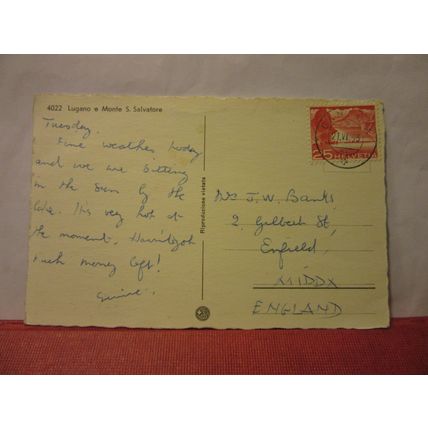 4022 Lugano e Monte S. Salvatore
Tuesday.
Fine weather today
and we are sitting
in the sun by the
lake. It's very hot at
the moment. Haven't got
much money left!
Riproduzione vietata
25 HELVETIA
Mrs J.W. Banks
2, Gilbert St,
Enfield,
MIDDX
ENGLAND